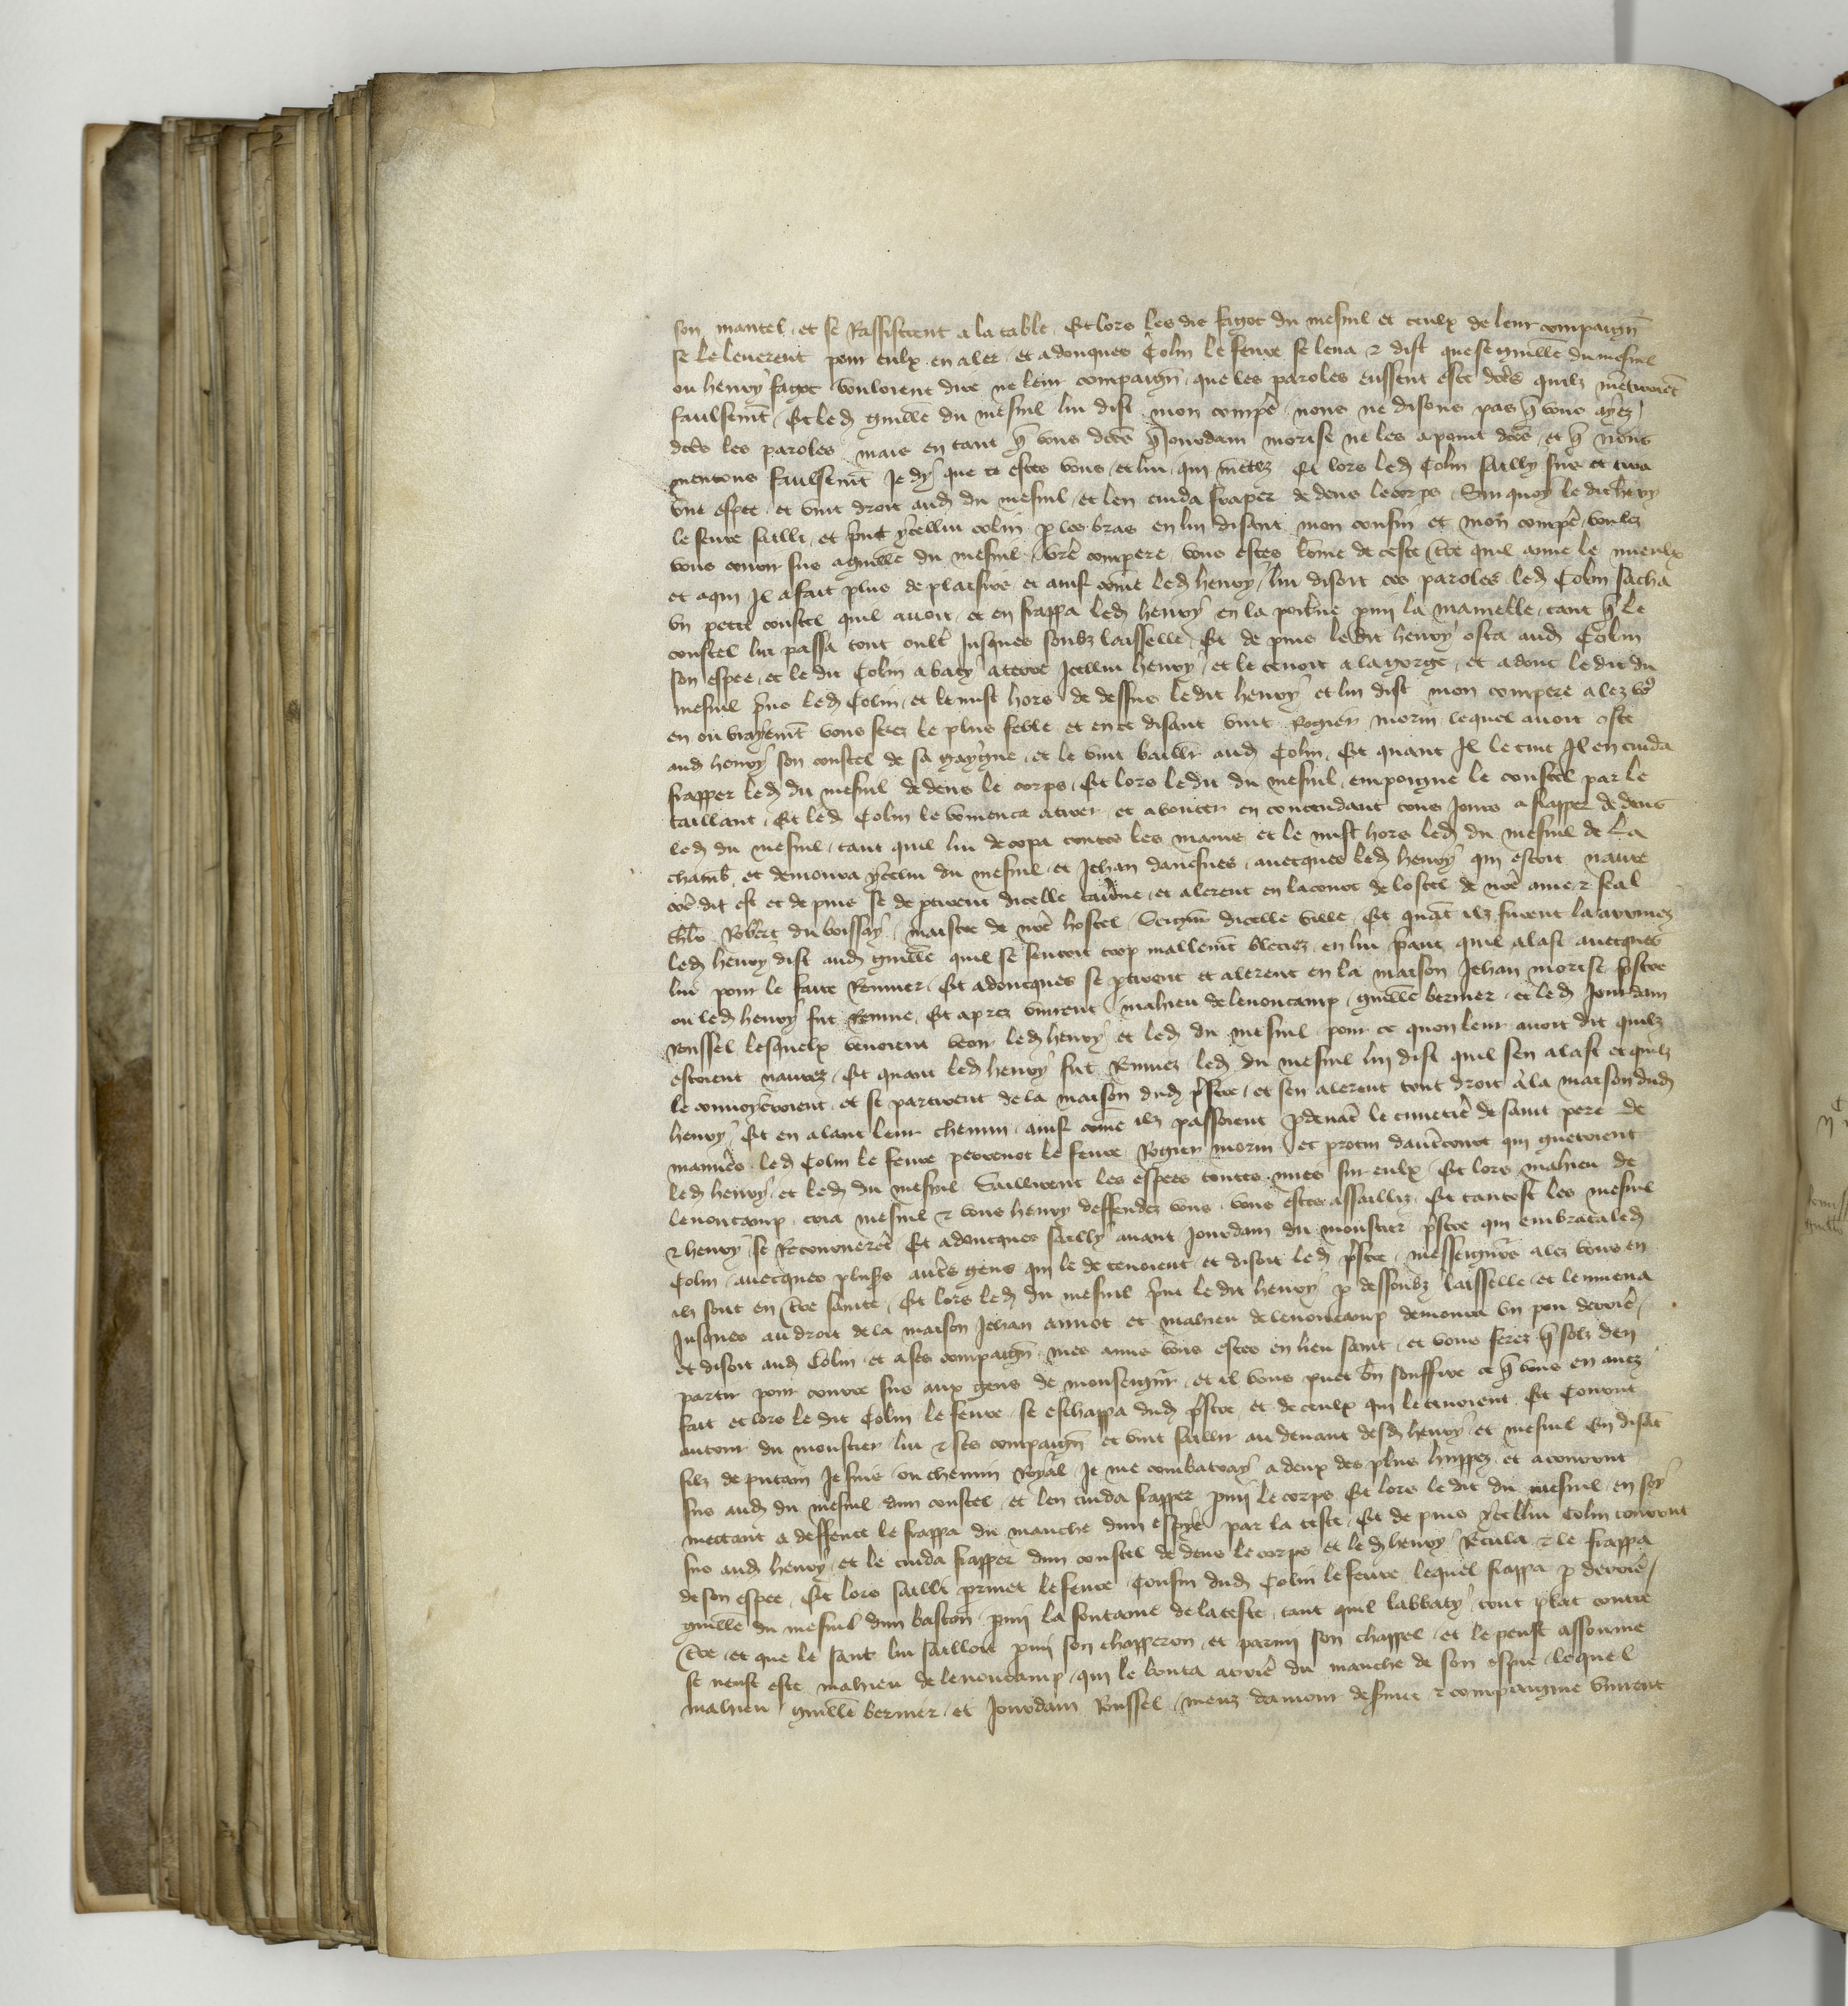 son mantel et se Rassistrent a la table Et lors les diz fagot du mesnil et ceulx de leur compaign̄
se le leverent pour eulx en aler et adonques Colin le fevre se leva ⁊ dist que se guill̄e du mesnil
ou henry fagot vouloient dire ne leur compaign̄ que les paroles eussent este dc̄es quilz mētiroiēt
faulsemt̄ Et led guill̄e du mesnil lui dist mon compe᷑ nous ne disons pas q̄ vous ayez
dc̄es les paroles mais en tant q̄ vous dc̄es q̄ Jourdain morise ne les a point dc̄es et q̄ nous
mentons faulsemt̄ Je dy que ce estes vous et lui qui mētez Et lors led Colin sailly sus et tira
vne espee et vint droit aud du mesnil et len cuida fraper dedens le corps Sur quoy le dit hēry
le fevre sailli et print ycellui colin p les bras en lui disant mon cousin et mon compe᷑ voulez
vous courir sus a guill̄e du mesnil vr̄e compere vous estes lōme de ceste tr̄e quil aime le mieulx
et a qui Il a fait plus de plaisirs et ainsi cōme led henry lui disoit ces paroles led Colin sacha
vn petit coustel quil avoit et en frappa led henry en la poitrine pmi la mamelle tant q̄ le
coustel lui passa tout oultr̄ Jusques soubz laisselle Et de puis ledit henry osta aud Colin
son espee et le dit Colin abaty a terre Icellui henry et le tenoit a la gorge et adonc le dit du
mesnil prins led Colin et le mist hors de dessus le dit henry et lui dist mon compere alez vo᷑
en ou vrayemt̄ vous serez le plus feble et en ce disant vint Rogier morin lequel avoit oste
aud henry son coustel de sa gaygne et le vint baillir aud Colin Et quant Il le tint Il en cuida
frapper led du mesnil dedens le corps Et lors ledit du mesnil empoigne le coustel par le
taillant Et led Colin le comenca a tirer et a bouter en contendant tous Jours a frapper dedens
led du mesnil tant quil lui decopa toutes les mains et le mist hors led du mesnil de la
chamb᷑ et demoura ycellui du mesnil et Jehan davesnes avecques led henry qui estoit navre
cōe dit est et de puis se de ptirent dicelle taūne et alerent en la court de lostel de nr̄e ame ⁊ feal
chl̄r Rob̄ert du boissay maistre de nr̄e hostel Seign̄r dicelle ville Et quāt ilz furent la arrivez
led henry dist aud guill̄e quil se sentoit trop mallemt̄ bleciez en lui priant quil alast avecques
lui pour le faire Remuer Et adoncques se ptirent et alerent en la maison Jehan morise pr̄stre
ou led henry fut Remue Et aprez vinrent mahieu de lenoncamp guill̄e bernier et led Jourdain
Roussel lesquelx venoient veoir led henry et led du mesnil pour ce quon leur avoit dit quilz
estoient navrez Et quant led henry fut Remuez led du mesnil lui dist quil sen alast et quilz
le convoyeroient et se partirent de la maison dud pr̄stre et sen alerent tout droit a la maison dud
henry Et en alant leur chemin ainsi cōme ilz passoient p devāt le cimetie᷑ de saint pere de
maniers led Colin le fevre perrenot le fevre Rogier morin et protin qui guetoient
led henry et led du mesnil Saillirent les espees toutes nues sur eulx Et lors mahieu de
lenoncamp cria mesnil ⁊ vous henry deffendez vous vous estes assailliz Et tantost les mesnil
⁊ henry se Recouvrerēt Et adoncques sailly avant Jourdain du moustier pr̄stre qui embraca led
Colin avecques plus᷑s autr̄es gens qui le detenoient et disoit led pr̄stre messeign̄rs alez vous en
ilz sont en tr̄e sainte Et lors led du mesnil print le dit henry p dessoubz laisselle et lenmena
Jusques au droit de la maison Jehan annot et mahieu de lenoncamp demoura vn pou derrie᷑
et disoit aud Colin et a ses compaign̄ mes amis vous estes en lieu saint et vous ferez q̄ folz den
partir pour courre sus aux gens de monseign̄r et il vous puet bn̄ souffire ce q̄ vous en avez
fait et lors le dit Colin le fevre se eschappa dud pr̄stre et de ceulx qui le tenoient Et Couru
autour du moustier lui ⁊ ses compaign̄ et vint saillir au devant desd henry et mesnil En disāt
filz de putain Je suis ou chemin Royal Je me combatray a deux des plus huppez et a couru
sus aud du mesnil dun coustel et len cuida frapper pmi le corps Et lors le dit du mesnil en soy
mettant a deffence le frappa du manche dun espie᷑ par la teste Et de puis ycellui Colin couru
sus aud henry et le cuida frapper dun coustel dedens le corps et led henry Recula ⁊ le frappa
de son espee Et lors sailli prinet le fevre Cousin dud Colin le fevre lequel frappa p derrie᷑
guill̄e du mesnil dun baston pmi la fontaine de la teste tant quil labbaty tout plat contre
tr̄e et que le sanc lui sailloit pmi son chapperon et parmi son chappel et le peust assomme
se neust este mahieu de lenoncamp qui le bouta arrie᷑ du manche de son espie lequel
mahieu guill̄e bernier et Jourdain Roussel meuz damour desmue ⁊ compaignie vinrent